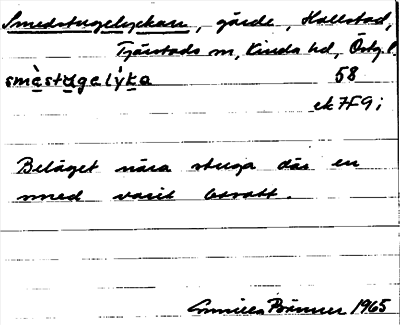 Smedstugelyckan, gärde, Hallstad,
Tjärstads sn, Kinda hd, Östg. l.
smèstugelýka 58
ek 7F9 i
Beläget nära stuga där en
smed varit bosatt.
Gunilla Bränner 1965